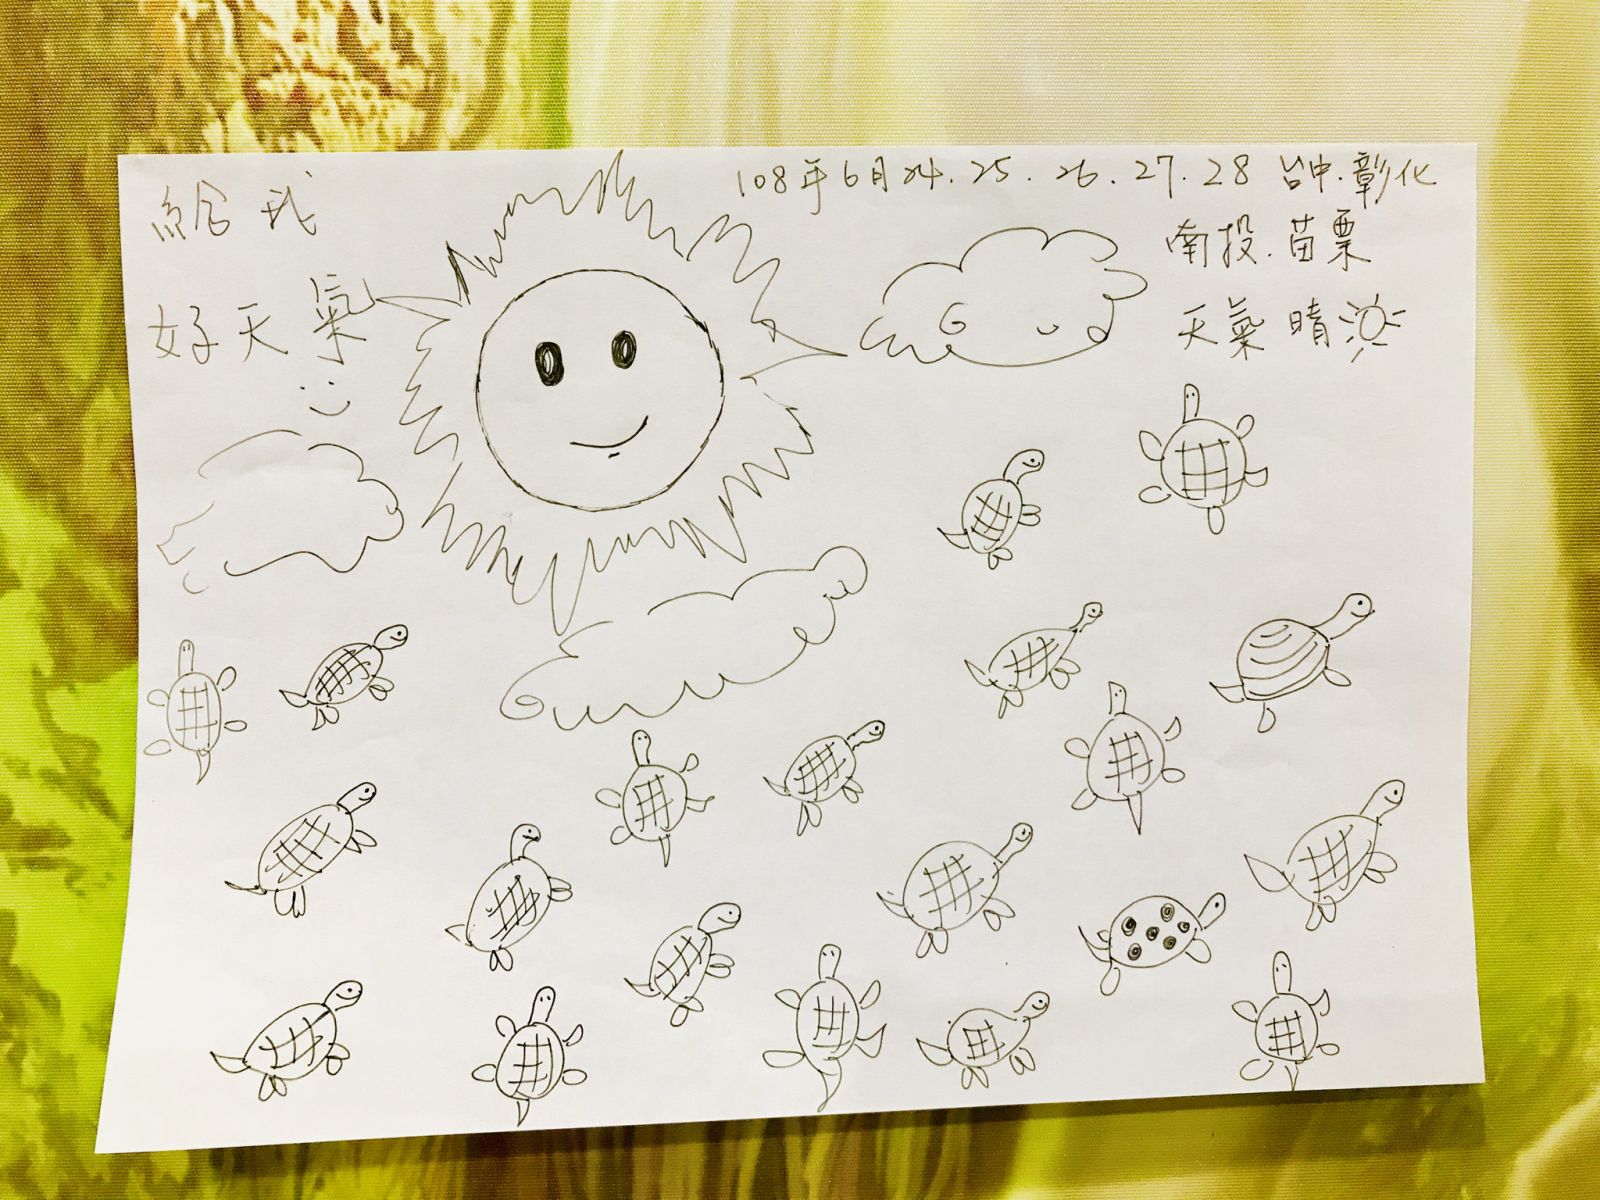 給我
好天氣
108年6月24.25.26.27.28 台中.彰化
南投.苗栗
天氣晴